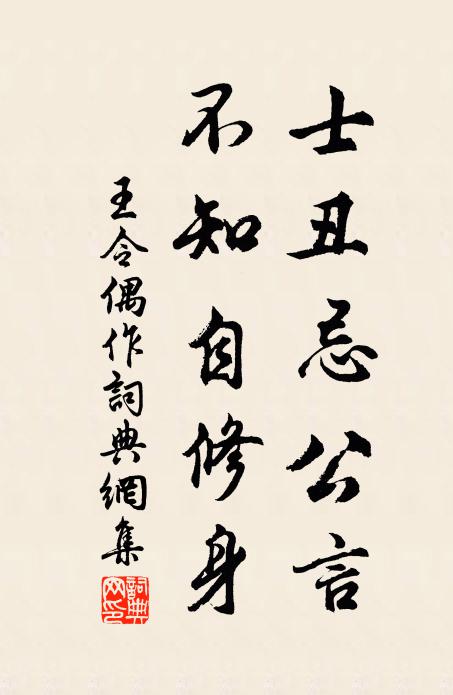 士丑忌公言
不知自修身
王令偶作詞典網集
詞典網印